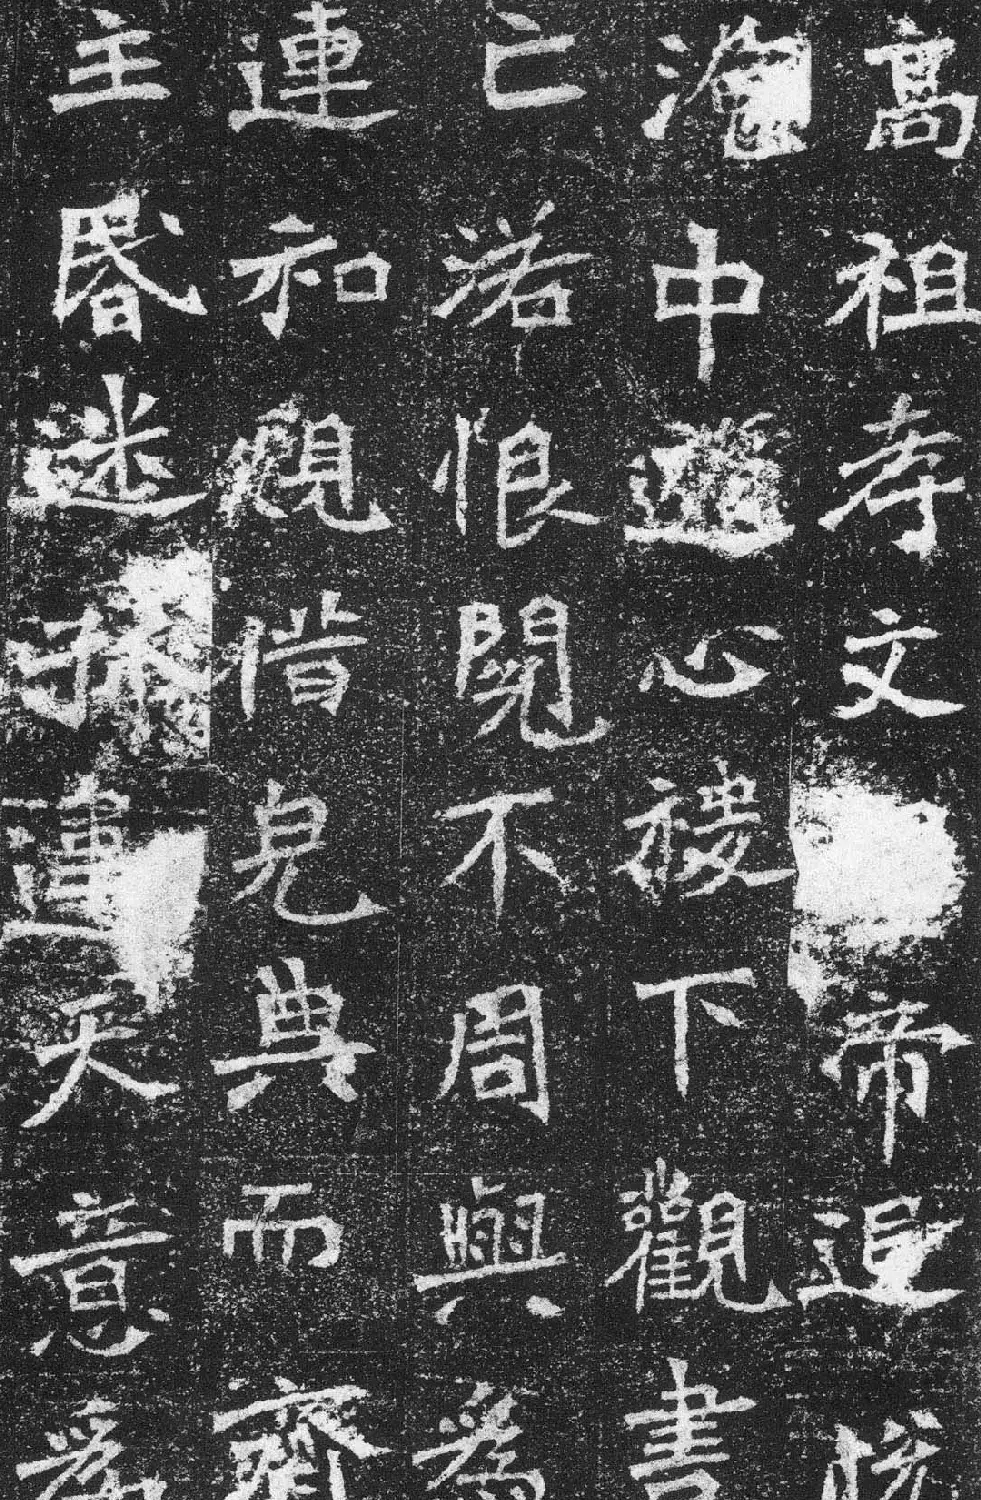 高祖孝文帝追悅
淹中遊心稷下觀書
亡落恨閱不周與為
連和規借見典而齊
主昬迷孤違天意為